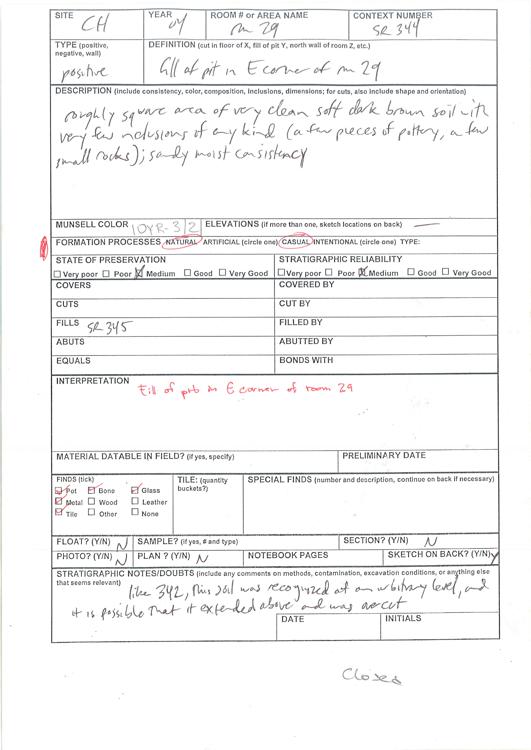 SITE CH YEAR 04 ROOM # OR AREA NAME rm 29 CONTEXT NUMBER SR 344
TYPE (positive, negative, wall) positive DEFINITION (cut in floor of X, fill of pit Y, north wall of room Z, etc.) fill of pit in E corner of rm 29
DESCRIPTION (include consistency, color, composition, inclusions, dimensions; for cuts, also include shape and orientation)
roughly square area of very clean soft dark brown soil with
very few inclusions of any kind (a few pieces of pottery, a few
small rocks); sandy moist consistency
MUNSELL COLOR 10YR-3/2 ELEVATIONS (if more than one, sketch locations on back) —
FORMATION PROCESSES NATURAL ARTIFICIAL (circle one) CASUAL INTENTIONAL (circle one) TYPE:
STATE OF PRESERVATION STRATIGRAPHIC RELIABILITY
Very poor Poor Medium Good Very Good Very poor Poor Medium Good Very Good
COVERS COVERED BY
CUTS CUT BY
FILLS SR 345 FILLED BY
ABUTS ABUTTED BY
EQUALS BONDS WITH
INTERPRETATION Fill of pit in E corner of room 29
MATERIAL DATABLE IN FIELD? (if yes, specify) PRELIMINARY DATE
FINDS (tick) TILE: (quantity buckets?) SPECIAL FINDS (number and description, continue on back if necessary)
Pot Bone Glass
Metal Wood Leather
Tile Other None
FLOAT? (Y/N) N SAMPLE? (if yes, # and type) SECTION? (Y/N) N
PHOTO? (Y/N) N PLAN ? (Y/N) N NOTEBOOK PAGES SKETCH ON BACK? (Y/N) Y
STRATIGRAPHIC NOTES/DOUBTS (include any comments on methods, contamination, excavation conditions, or anything else
that seems relevant) like 342, this soil was recognized at an arbitrary level, and
it is possible that it extended above and was overcut
DATE INITIALS
Closed